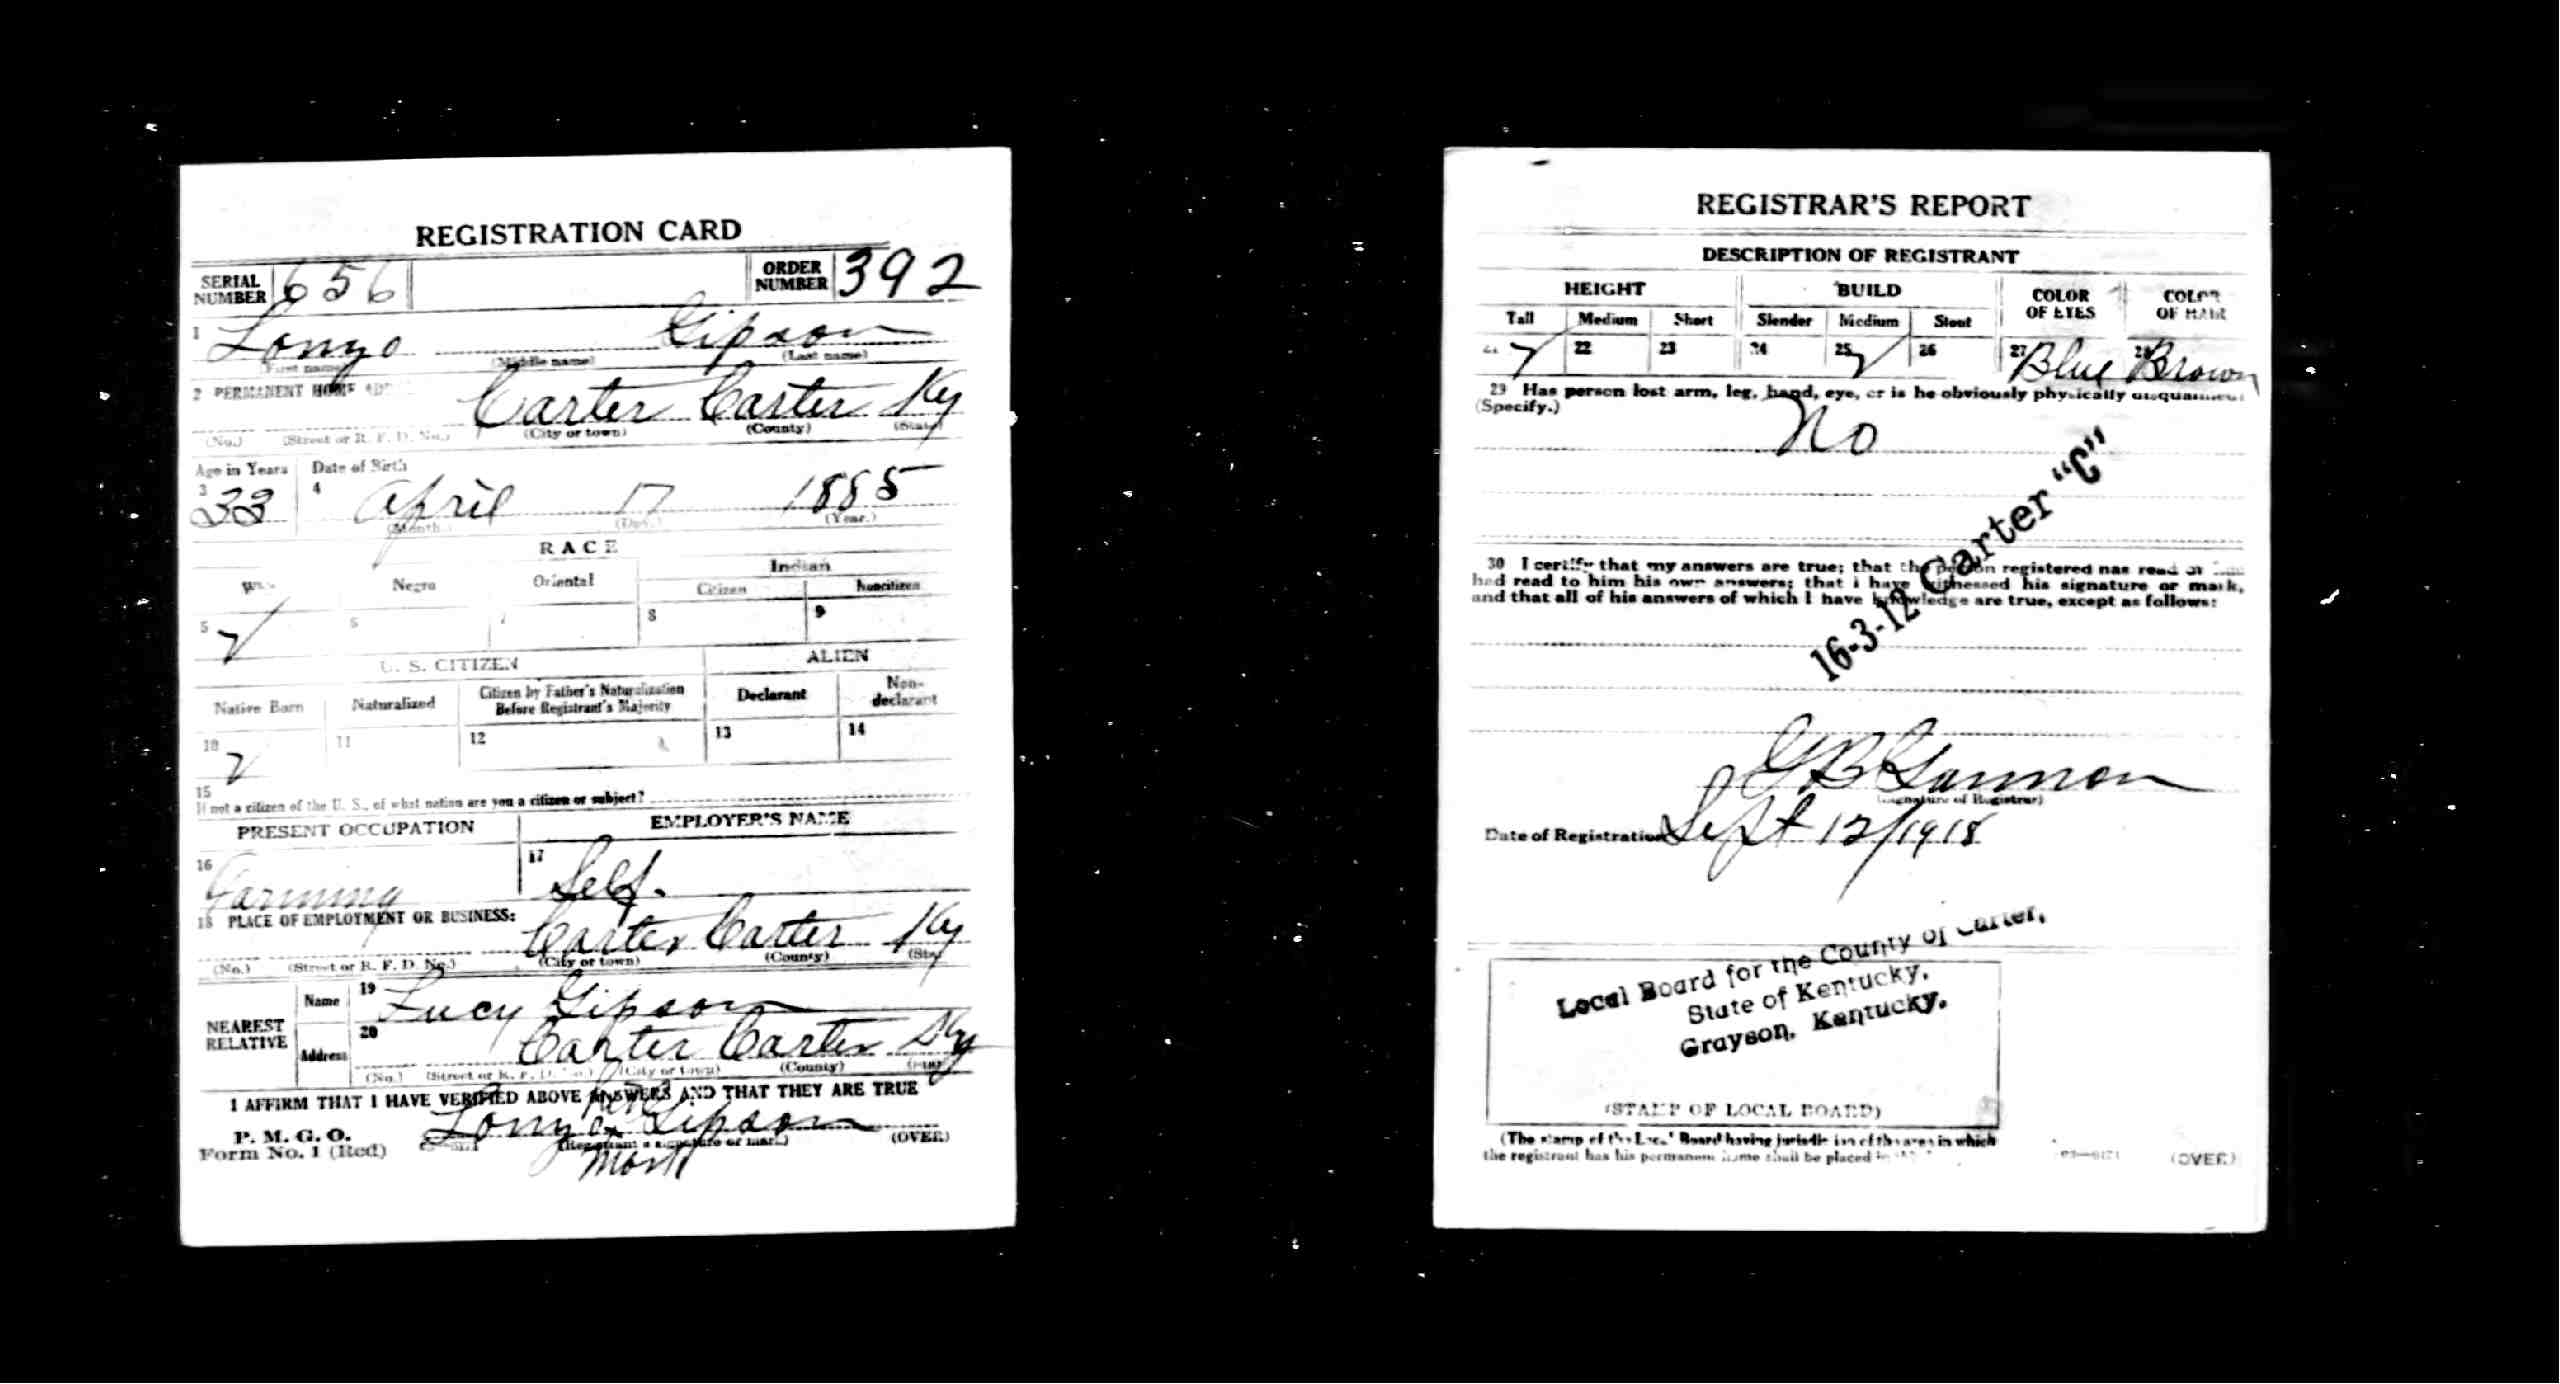 REGISTRATION CARD
SERIAL NUMBER 656 ORDER NUMBER 392
1 Lonzo Gipson
(First name) (Middle name) (Last name)
2 PERMANENT HOME
Carter Carter Ky
(No.) (Street or R. F. D. No.) (City or town) (County) (State)
Age in Years Date of Birth
3 33 4 April 17 1885
(Month.) (Day.) (Year.)
RACE
Negro Oriental Indian
Citizen Noncitizen
5 ✓ 6 7 8 9
U. S. CITIZEN ALIEN
Native Born Naturalized Citizen by Father's Naturalization Before Registrant's Majority Declarant Non-declarant
10 ✓ 11 12 13 14
15
If not a citizen of the U. S., of what nation are you a citizen or subject?
PRESENT OCCUPATION EMPLOYER'S NAME
16 Farming 17 Self.
18 PLACE OF EMPLOYMENT OR BUSINESS:
Carter Carter Ky
(No.) (Street or R. F. D. No.) (City or town) (County)
NEAREST RELATIVE Name 19 Lucy Gipson
Address 20 Carter Carter Ky
(No.) (Street or R. F. D. No.) (City or town) (County)
I AFFIRM THAT I HAVE VERIFIED ABOVE ANSWERS AND THAT THEY ARE TRUE
P. M. G. O.
Form No. 1 (Red)
his
Lonzo x Gipson
(Registrant's signature or mark) (OVER)
Mark
REGISTRAR'S REPORT
DESCRIPTION OF REGISTRANT
HEIGHT BUILD COLOR OF EYES COLOR OF HAIR
Tall Medium Short Slender Medium Stout
21 ✓ 22 23 24 25 ✓ 26 27 Blue 28 Brown
29 Has person lost arm, leg, hand, eye, or is he obviously physically disqualified?
(Specify.)
No
16-3-12 Carter "C"
30 I certify that my answers are true; that the person registered has read or
had read to him his own answers; that I have witnessed his signature or mark,
and that all of his answers of which I have knowledge are true, except as follows:
G B Gannon
(Signature of Registrar)
Date of Registration Sept 12/1918
Local Board for the County of Carter,
State of Kentucky,
Grayson, Kentucky.
(STAMP OF LOCAL BOARD)
(The stamp of the Local Board having jurisdiction of the area in which
the registrant has his permanent home shall be placed in
(OVER)